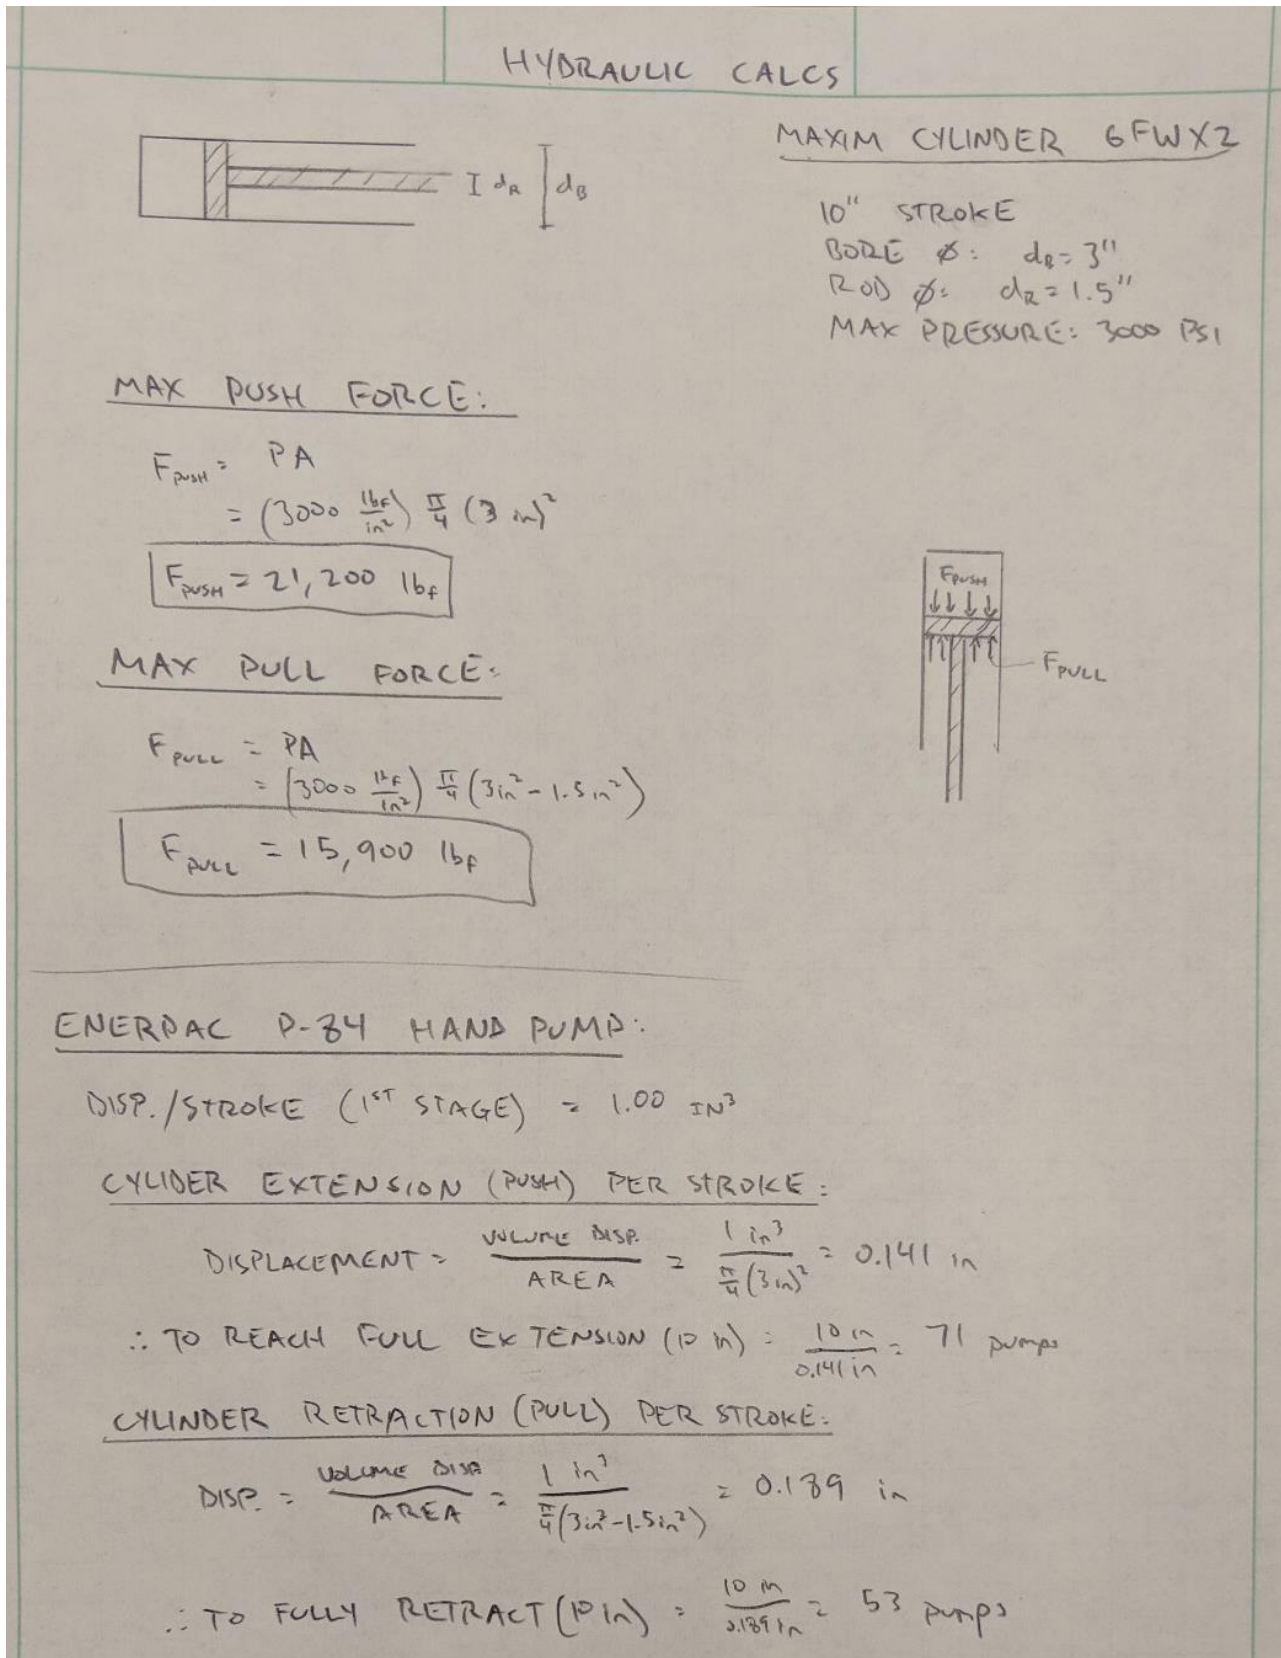 HYDRAULIC CALCS
MAXIM CYLINDER 6FWX2
dR dB
10" STROKE
BORE Ø: dB = 3"
ROD Ø: dR = 1.5"
MAX PRESSURE: 3000 PSI
MAX PUSH FORCE:
FPUSH = PA
= (3000 lbf/in²) π/4 (3 in)²
FPUSH = 21,200 lbf
FPUSH
FPULL
MAX PULL FORCE:
FPULL = PA
= (3000 lbf/in²) π/4 (3in² - 1.5in²)
FPULL = 15,900 lbf
ENERPAC P-84 HAND PUMP:
DISP./STROKE (1ST STAGE) = 1.00 IN³
CYLIDER EXTENSION (PUSH) PER STROKE:
DISPLACEMENT = VOLUME DISP. / AREA = 1 in³ / π/4 (3 in)² = 0.141 in
∴ TO REACH FULL EXTENSION (10 in) = 10 in / 0.141 in = 71 pumps
CYLINDER RETRACTION (PULL) PER STROKE:
DISP. = VOLUME DISP / AREA = 1 in³ / π/4 (3in² - 1.5in²) = 0.189 in
∴ TO FULLY RETRACT (10 in) = 10 in / 0.189 in = 53 pumps